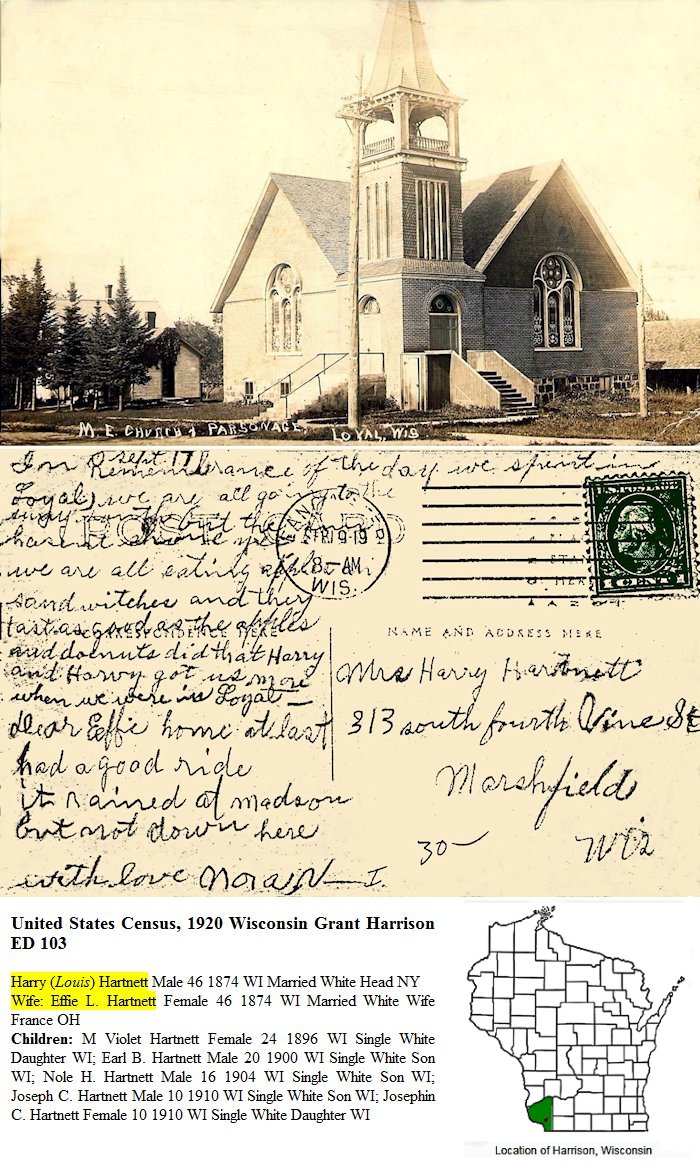 M. E. CHURCH & PARSONAGE, LOYAL, WIS
Sept 17
In Rememberance of the day we spent in
Loyal) we are all going to the
but the
hasent
we are all eating
sand witches and they
tast as good as the apples
and doenuts did that Harry
and Harvy got us more
when we were in Loyal—
dear Effie home at last
had a good ride
it rained at madson
but not down here
with love Nora N— I.
SEP 19 19
8-AM
WIS.
CORRESPONDENCE HERE
NAME AND ADDRESS HERE
Mrs Harry Hartnett
313 south fourth Vine St
Marshfield
30— Wis
United States Census, 1920 Wisconsin Grant Harrison
ED 103
Harry (Louis) Hartnett Male 46 1874 WI Married White Head NY
Wife: Effie L. Hartnett Female 46 1874 WI Married White Wife
France OH
Children: M Violet Hartnett Female 24 1896 WI Single White
Daughter WI; Earl B. Hartnett Male 20 1900 WI Single White Son
WI; Nole H. Hartnett Male 16 1904 WI Single White Son WI;
Joseph C. Hartnett Male 10 1910 WI Single White Son WI; Josephin
C. Hartnett Female 10 1910 WI Single White Daughter WI
Location of Harrison, Wisconsin